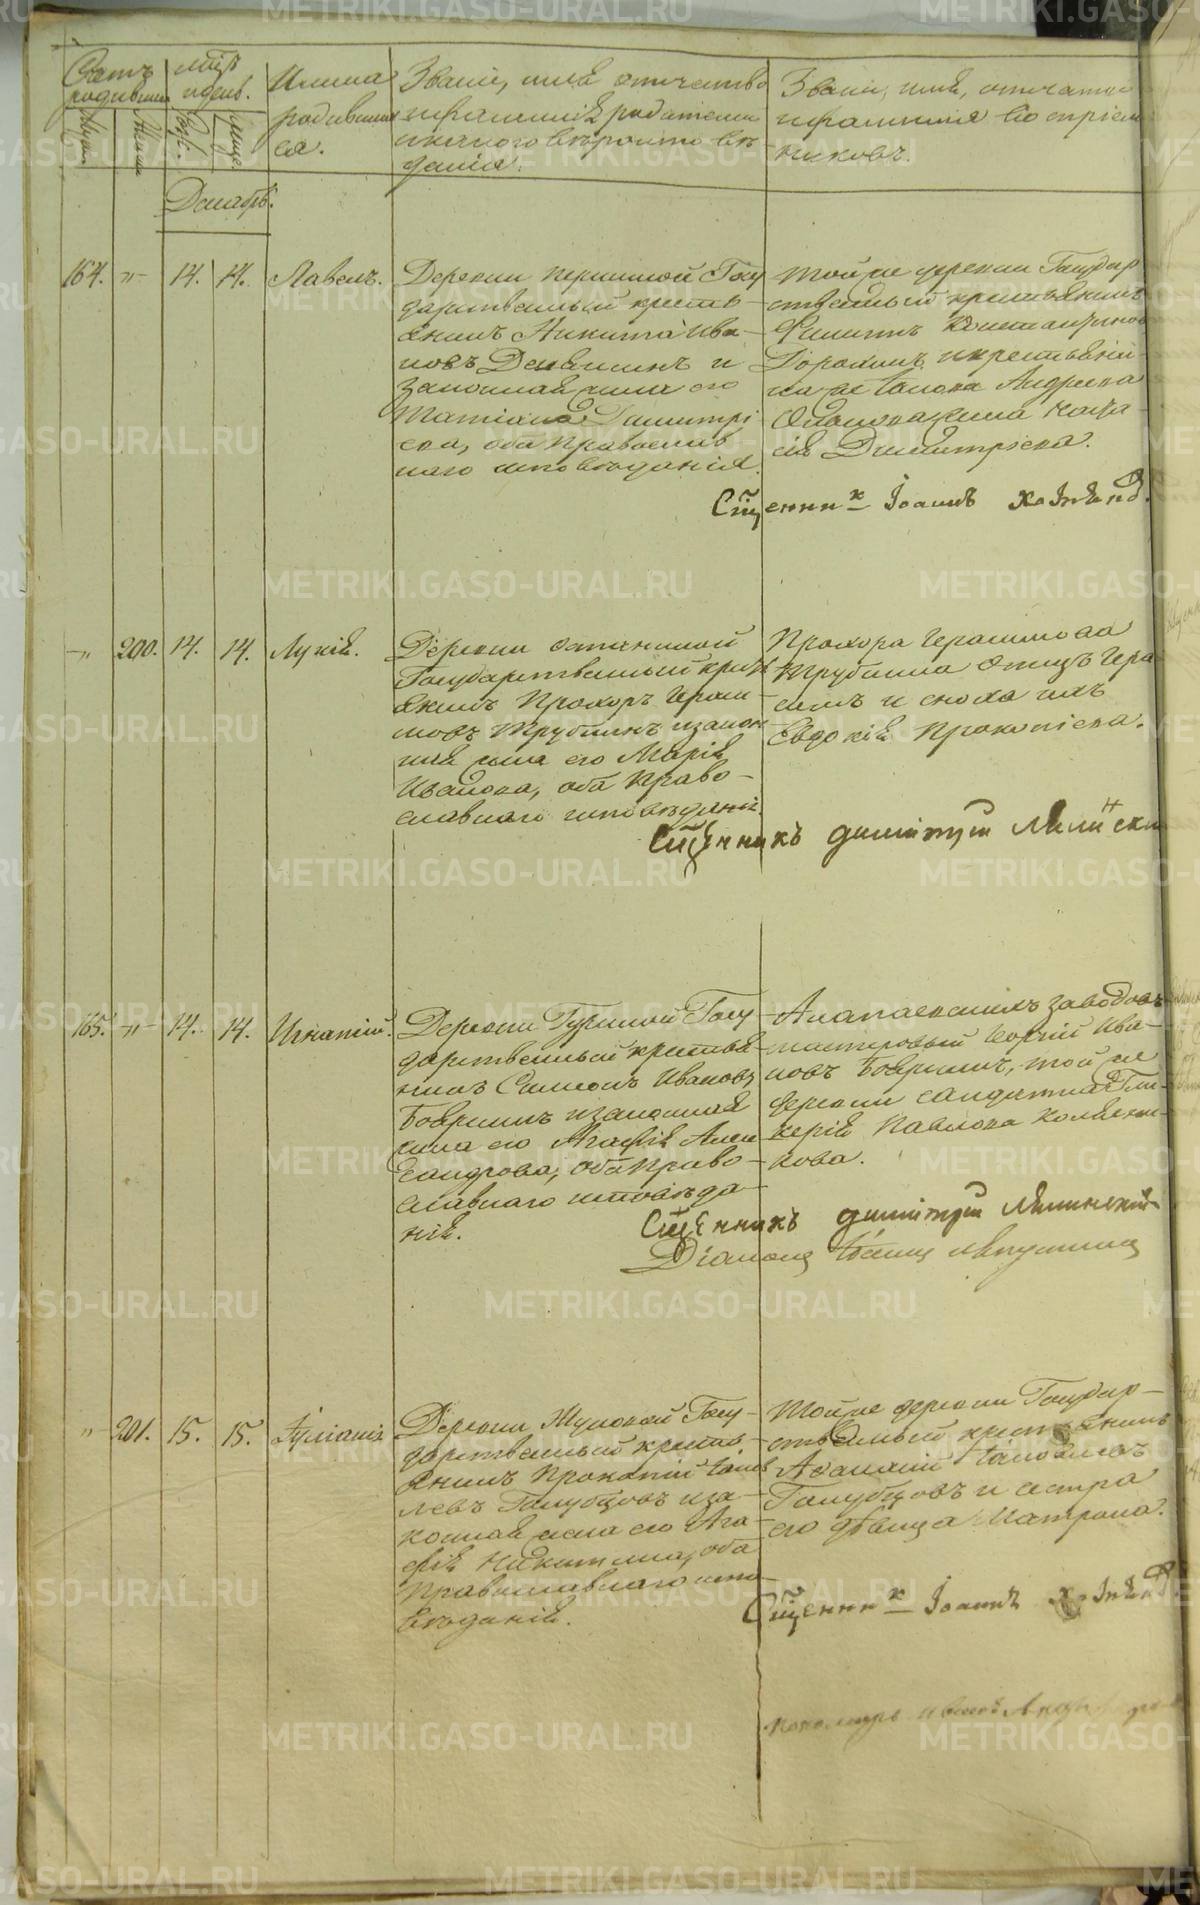 METRIKI.GASO-URAL.RU
Счетъ родившихся
Мѣсяцъ и день.
Имена родившихся.
Званіе, имя, отчество
и фамилія родителей
и какого вѣроисповѣ-
данія.
Званіе, имя, отчество
и фамилія воспріем-
никовъ.
Декабрь.
164. -"- 14. 14. Павелъ.
Деревни Першиной Госу
дарственный кресть-
янинъ Никита Ива-
новъ и
законная жена его
Татіана Димитрі
ева, оба православ
наго исповѣданія.
Той же деревни Государ
ственный крестьянинъ
Филиппъ Константинов
и крестьянин-
Андреева
Димитріева.
Сщенникъ Іоаннъ
-"- 200. 14. 14. Лукія.
Деревни Останиной
Государственный крест
янинъ Прохоръ Гераси-
мовъ Трубинъ и закон
ная жена его Марія
Иванова, оба право-
славнаго исповѣданія.
Прохора Герасимова
Трубина отецъ Гера-
симъ и сноха ихъ
Евдокія Прокопіева.
Сщенникъ Димитрій
165. -"- 14. 14. Игнатій.
Деревни Гуриной Госу
дарственный крестья-
нинъ Симеонъ Ивановъ
Бобринъ и законная
жена его Агафія Алек
сандрова, оба право-
славнаго исповѣда-
нія.
Алапаевскихъ заводовъ
мастеровый Георгій Ива-
новъ Бобринъ, той же
деревни солдатка Гли-
керія Павлова
Сщенникъ Димитрій
Діаконъ
" 201. 15. 15. Іуліанія
Деревни Жуковой Госу-
дарственный кресть-
янинъ Прокопій Іаков
левъ Голубцовъ и за-
конная жена его Ага-
фія Никитина, оба
православнаго испо-
вѣданія.
Той же деревни Государ-
ственный крестьянинъ
Аѳанасій Іаковлевъ
Голубцовъ и сестра
его дѣвица Матрона.
Сщенникъ Іоаннъ
Пономарь Иванъ